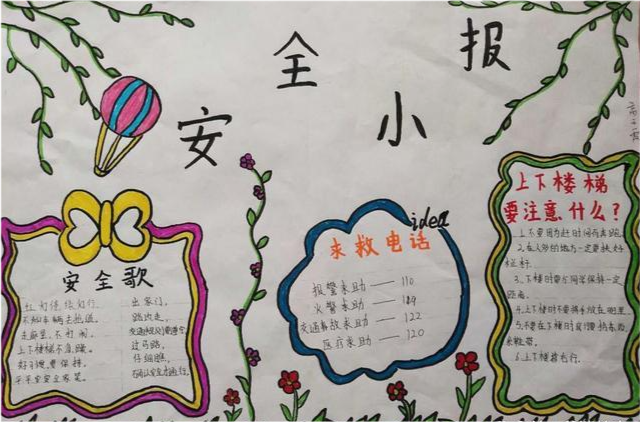 安全小报
安全歌
红灯停绿灯行,
不和车辆去抢道,
走廊里,不打闹,
上下楼梯不急躁。
好习惯,要保持,
平平安安全家笑。
出家门,
路边走,
交通法规要遵守
过马路,
仔细瞧,
idea
求救电话
报警求助——110
火警求助——119
交通事故求助——122
医疗求助——120
上下楼梯
要注意什么?
1.上不要因为赶时间而奔跑。
2.在人多的地方一定要扶好
栏杆。
3、下楼时要与同学保持一定
距离。
4、上下楼时不要将手放在兜里
5.不要在下楼时
系鞋带。
6.上下楼梯靠右行。